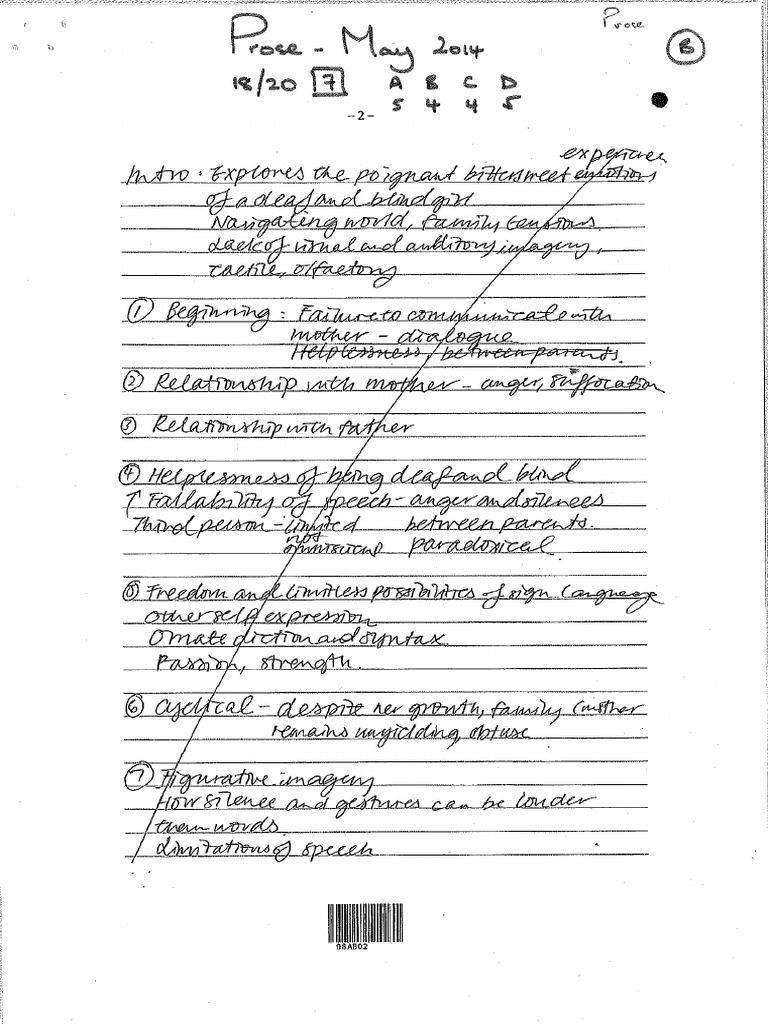 Prose
Prose - May 2014
B
18/20 7 A B C D
5 4 4 5
-2-
experience
Intro . Explores the poignant bittersweet emotions
of a deaf and blind girl
Navigating world, family tensions
Lack of visual and auditory imagery,
tactile, olfactory
① Beginning : Failure to communicate with
mother - dialogue
Helplessness, between parents.
② Relationship with mother - anger, suffocation
③ Relationship with father
④ Helplessness of being deaf and blind
↑ Fallability of speech - anger and silences
Third person - limited between parents.
not
omniscient paradoxical
⑤ Freedom and limitless possibilities of sign language
other self expression
Ornate diction and syntax
Passion, strength.
⑥ Cyclical - despite her growth, family (mother
remains unyielding, obtuse
⑦ Figurative imagery
How silence and gestures can be louder
than words.
Limitations of speech
08AB02